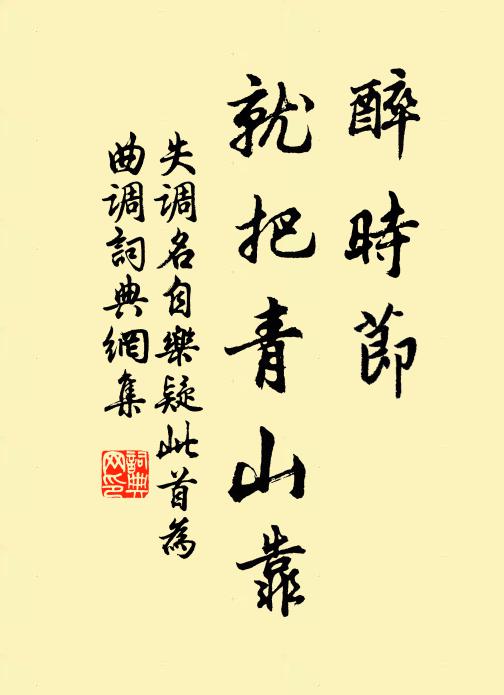 醉時節
就把青山靠
失调名自樂疑此首為
曲调詞典網集
詞典网印